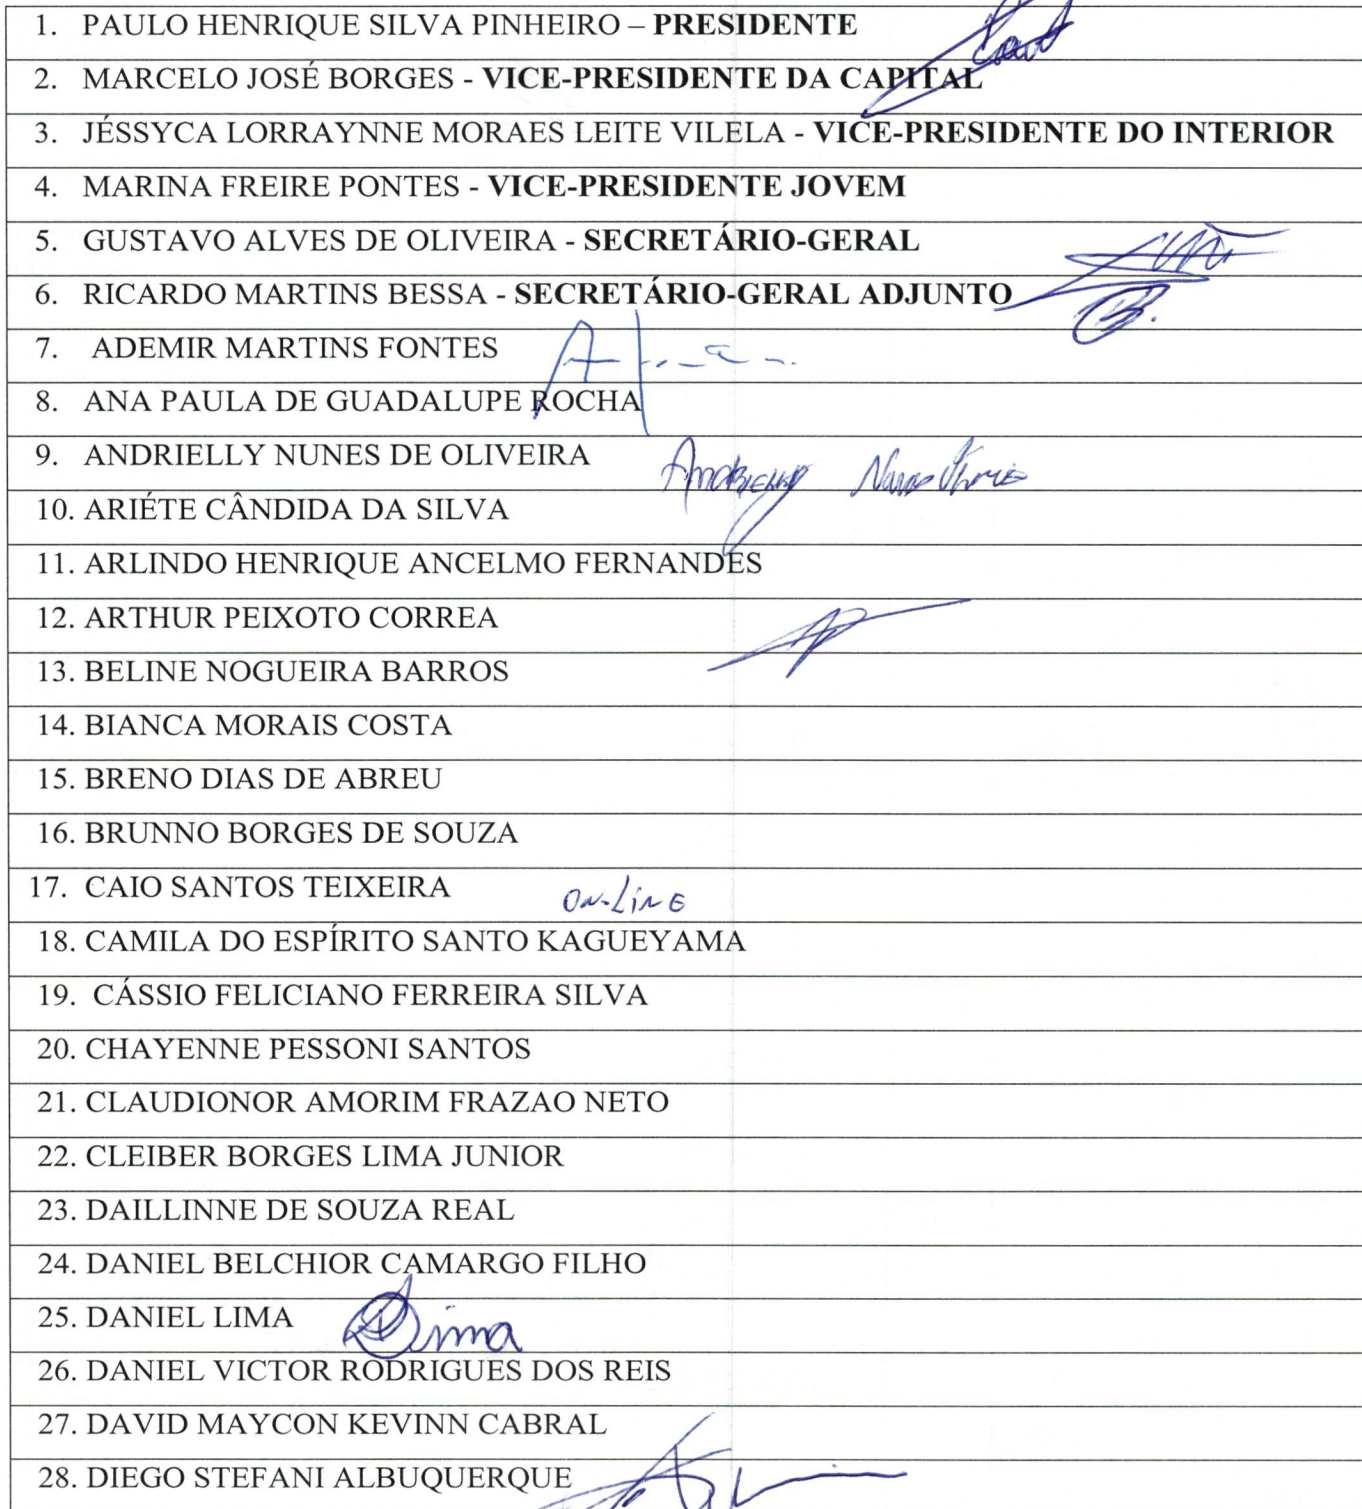 1. PAULO HENRIQUE SILVA PINHEIRO – PRESIDENTE
2. MARCELO JOSÉ BORGES - VICE-PRESIDENTE DA CAPITAL
3. JÉSSYCA LORRAYNNE MORAES LEITE VILELA - VICE-PRESIDENTE DO INTERIOR
4. MARINA FREIRE PONTES - VICE-PRESIDENTE JOVEM
5. GUSTAVO ALVES DE OLIVEIRA - SECRETÁRIO-GERAL
6. RICARDO MARTINS BESSA - SECRETÁRIO-GERAL ADJUNTO
7. ADEMIR MARTINS FONTES
8. ANA PAULA DE GUADALUPE ROCHA
9. ANDRIELLY NUNES DE OLIVEIRA
10. ARIÉTE CÂNDIDA DA SILVA
11. ARLINDO HENRIQUE ANCELMO FERNANDES
12. ARTHUR PEIXOTO CORREA
13. BELINE NOGUEIRA BARROS
14. BIANCA MORAIS COSTA
15. BRENO DIAS DE ABREU
16. BRUNNO BORGES DE SOUZA
17. CAIO SANTOS TEIXEIRA ON-LINE
18. CAMILA DO ESPÍRITO SANTO KAGUEYAMA
19. CÁSSIO FELICIANO FERREIRA SILVA
20. CHAYENNE PESSONI SANTOS
21. CLAUDIONOR AMORIM FRAZAO NETO
22. CLEIBER BORGES LIMA JUNIOR
23. DAILLINNE DE SOUZA REAL
24. DANIEL BELCHIOR CAMARGO FILHO
25. DANIEL LIMA
26. DANIEL VICTOR RODRIGUES DOS REIS
27. DAVID MAYCON KEVINN CABRAL
28. DIEGO STEFANI ALBUQUERQUE